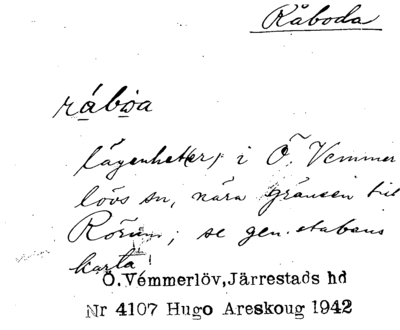 Råboda
råbǫa
lägenhet(er) i Ö. Vemmer
lövs sn, nära gränsen till
Rörum; se gen. stabens
karta
Ö.Vemmerlöv,Järrestads hd
Nr 4107 Hugo Areskoug 1942